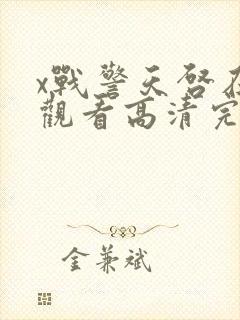 x戰警天啓在
觀看高清完
金兼斌